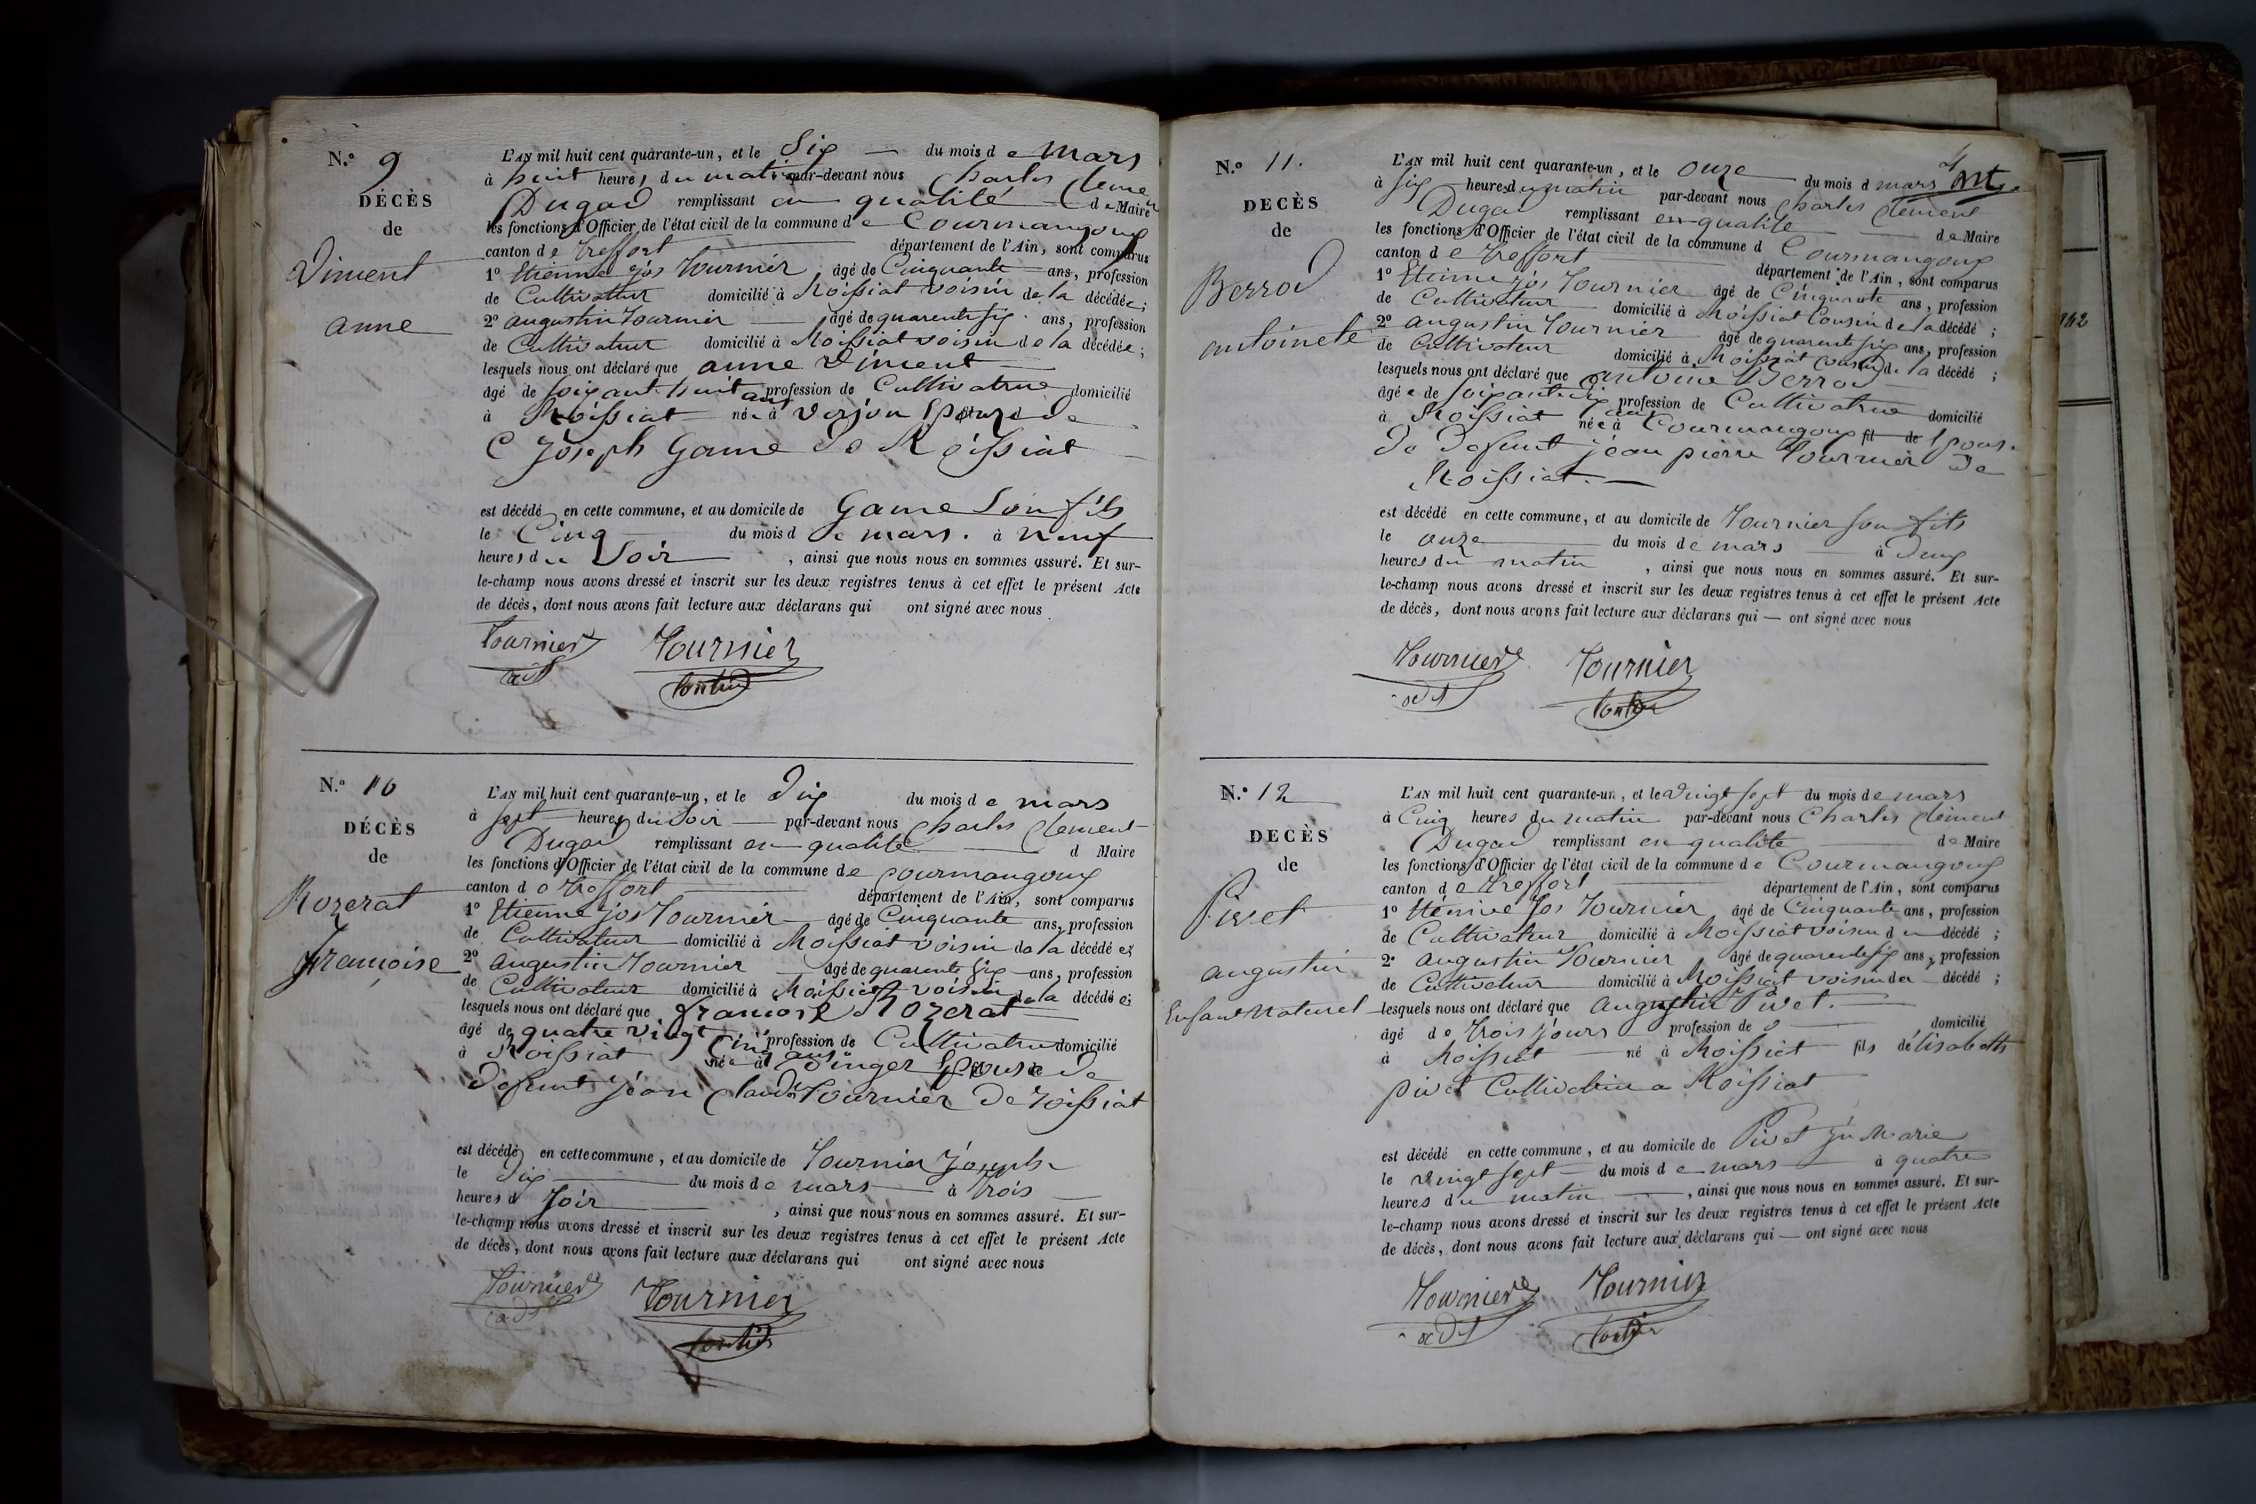 N.° 9
DÉCÈS
de
Diment
anne
L'AN mil huit cent quarante-un, et le Six du mois de Mars
à huit heures du matin par-devant nous Charles Clement
Dugad remplissant en qualité de Maire
les fonctions d'Officier de l'état civil de la commune de Courmangoux
canton de treffort département de l'Ain, sont comparus
1° Etienne jos Tournier âgé de Cinquante ans, profession
de Cultivateur domicilié à Roissiat voisin de la décédée;
2° augustin Tournier âgé de quarente six ans, profession
de Cultivateur domicilié à Roissiat voisin de la décédée;
lesquels nous ont déclaré que anne Diment
âgé de soixant huit ans profession de Cultivatrice domicilié
à Roissiat née à verjon Epouse de
C Joseph Game de Roissiat
est décédé en cette commune, et au domicile de Game Son fils
le Cinq du mois de mars. à neuf
heures du Soir, ainsi que nous nous en sommes assuré. Et sur-
le-champ nous avons dressé et inscrit sur les deux registres tenus à cet effet le présent Acte
de décès, dont nous avons fait lecture aux déclarans qui ont signé avec nous
Tournier Tournier
adt
N.° 10
DÉCÈS
de
Rozerat
françoise
L'AN mil huit cent quarante-un, et le Dix du mois de mars
à sept heures du soir par-devant nous Charles Clement
Dugad remplissant en qualité d Maire
les fonctions d'Officier de l'état civil de la commune de Courmangoux
canton de treffort département de l'Ain, sont comparus
1° Etienne jos Tournier âgé de Cinquante ans, profession
de Cultivateur domicilié à Roissiat voisin de la décédée;
2° augustin Tournier âgé de quarente six ans, profession
de Cultivateur domicilié à Roissiat voisin de la décédée;
lesquels nous ont déclaré que françoise Rozerat
âgé de quatre vingt Cinq ans profession de Cultivatrice domicilié
à Roissiat née à Epouse de
defunt jean Claude Tournier De roissiat
est décédé en cette commune, et au domicile de Tournier Joseph
le Dix du mois de mars à trois
heures d Soir, ainsi que nous nous en sommes assuré. Et sur-
le-champ nous avons dressé et inscrit sur les deux registres tenus à cet effet le présent Acte
de décès, dont nous avons fait lecture aux déclarans qui ont signé avec nous
Tournier Tournier
adt
N.° 11.
DECÈS
de
Berrod
antoinete
L'AN mil huit cent quarante-un, et le onze du mois d mars
à six heures du matin par-devant nous Charles Clement
Dugad remplissant en qualite de Maire
les fonctions d'Officier de l'état civil de la commune d Courmangoux
canton de treffort département de l'Ain, sont comparus
1° Etienne jos Tournier âgé de Cinquante ans, profession
de Cultivateur domicilié à Roissiat Cousin de la décédé;
2° augustin Tournier âgé de quarente six ans, profession
de Cultivateur domicilié à Roissiat Cousin de la décédé;
lesquels nous ont déclaré que antoine Berrod
âgée de soixante dix ans profession de Cultivatrice domicilié
à Roissiat née à Courmangoux fil de Epouse
de defunt jean pierre Tournier De
Roissiat.
est décédé en cette commune, et au domicile de Tournier son fils
le onze du mois de mars à Deux
heures du matin, ainsi que nous nous en sommes assuré. Et sur-
le-champ nous avons dressé et inscrit sur les deux registres tenus à cet effet le présent Acte
de décès, dont nous avons fait lecture aux déclarans qui — ont signé avec nous
Tournier Tournier
adt
N.° 12
DECÈS
de
Pivet
augustin
Enfant Naturel
L'AN mil huit cent quarante-un, et le vingt sept du mois de mars
à Cinq heures du matin par-devant nous Charles Clément
Dugad remplissant en qualité de Maire
les fonctions d'Officier de l'état civil de la commune de Courmangoux
canton de treffort département de l'Ain, sont comparus
1° Etienne Jos Tournier âgé de Cinquante ans, profession
de Cultivateur domicilié à Roissiat voisin du décédé;
2° augustin Tournier âgé de quarente six ans, profession
de Cultivateur domicilié à Roissiat voisin du décédé;
lesquels nous ont déclaré que augustin Pivet.
âgé de trois jours profession de domicilié
à Roissiat né à Roissiat fils de Elisabeth
pivet Cultivatrice a Roissiat
est décédé en cette commune, et au domicile de Pivet jn Marie
le vingt sept du mois de mars à quatre
heures du matin, ainsi que nous nous en sommes assuré. Et sur-
le-champ nous avons dressé et inscrit sur les deux registres tenus à cet effet le présent Acte
de décès, dont nous avons fait lecture aux déclarans qui — ont signé avec nous
Tournier Tournier
adt